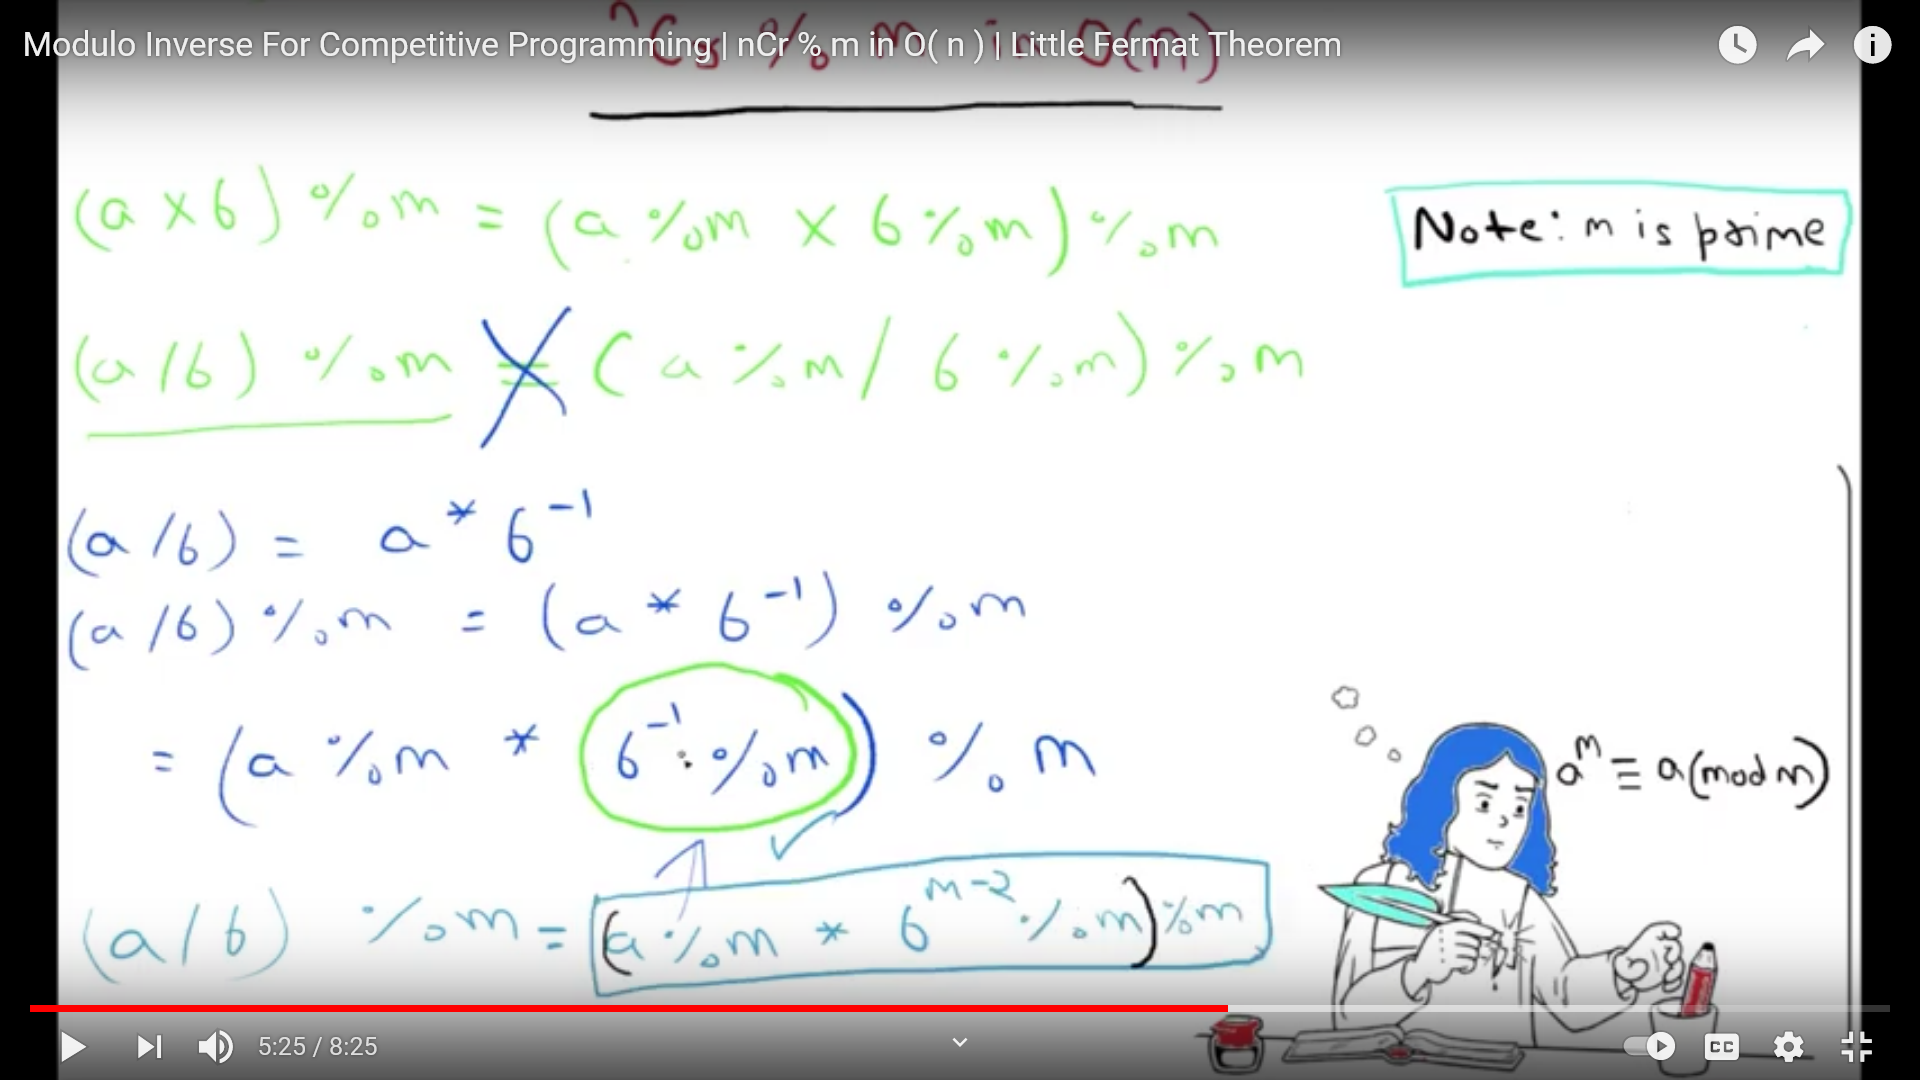 Modulo Inverse For Competitive Programming | nCr % m in O( n ) | Little Fermat Theorem
nCr % m in O(n)
(a × b) % m = (a % m × b % m) % m
Note: m is prime
(a / b) % m = (a % m / b % m) % m
(a / b) = a * b⁻¹
(a / b) % m = (a * b⁻¹) % m
= (a % m * b⁻¹ % m) % m
aᵐ ≡ a (mod m)
(a / b) % m = (a % m * bᵐ⁻² % m) % m
5:25 / 8:25
CC